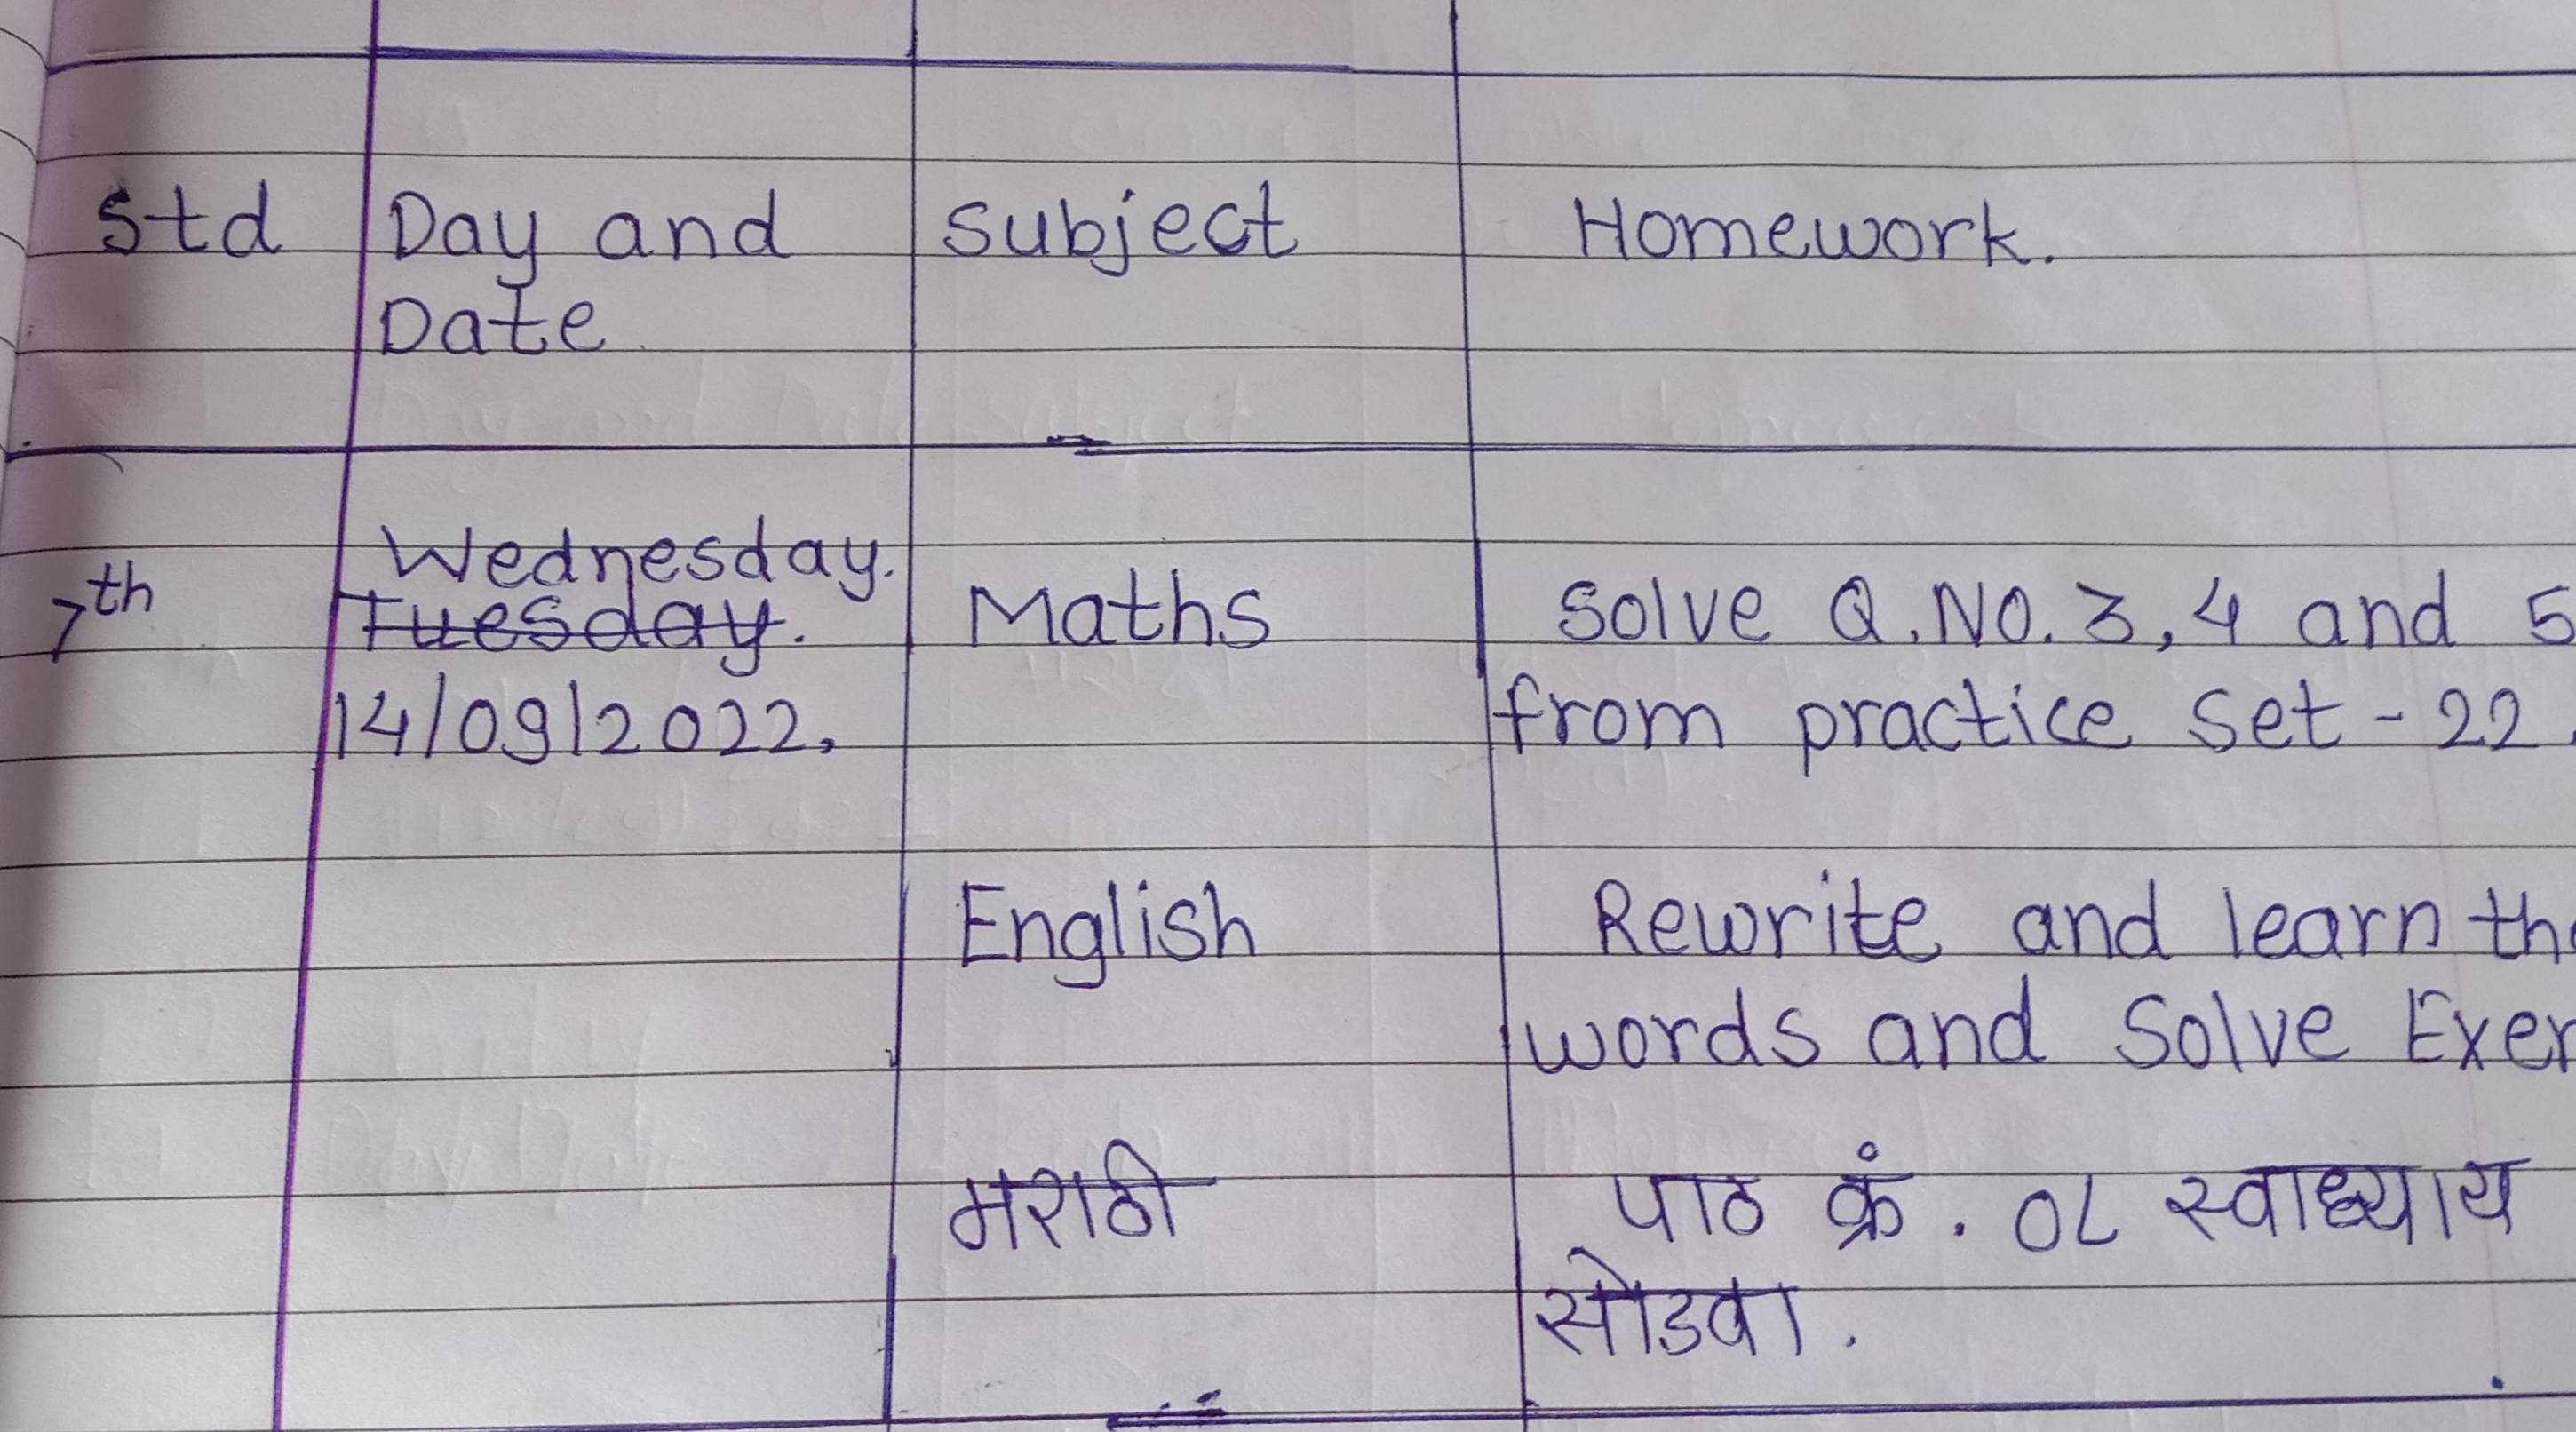 Std Day and Subject Homework.
Date
Wednesday.
7th Tuesday. Maths Solve Q.NO. 3, 4 and 5
14/09/2022. from practice set - 22.
English Rewrite and learn the
words and Solve Exer
मराठी पाठ क्रं. ०८ स्वाध्याय
सोडवा.